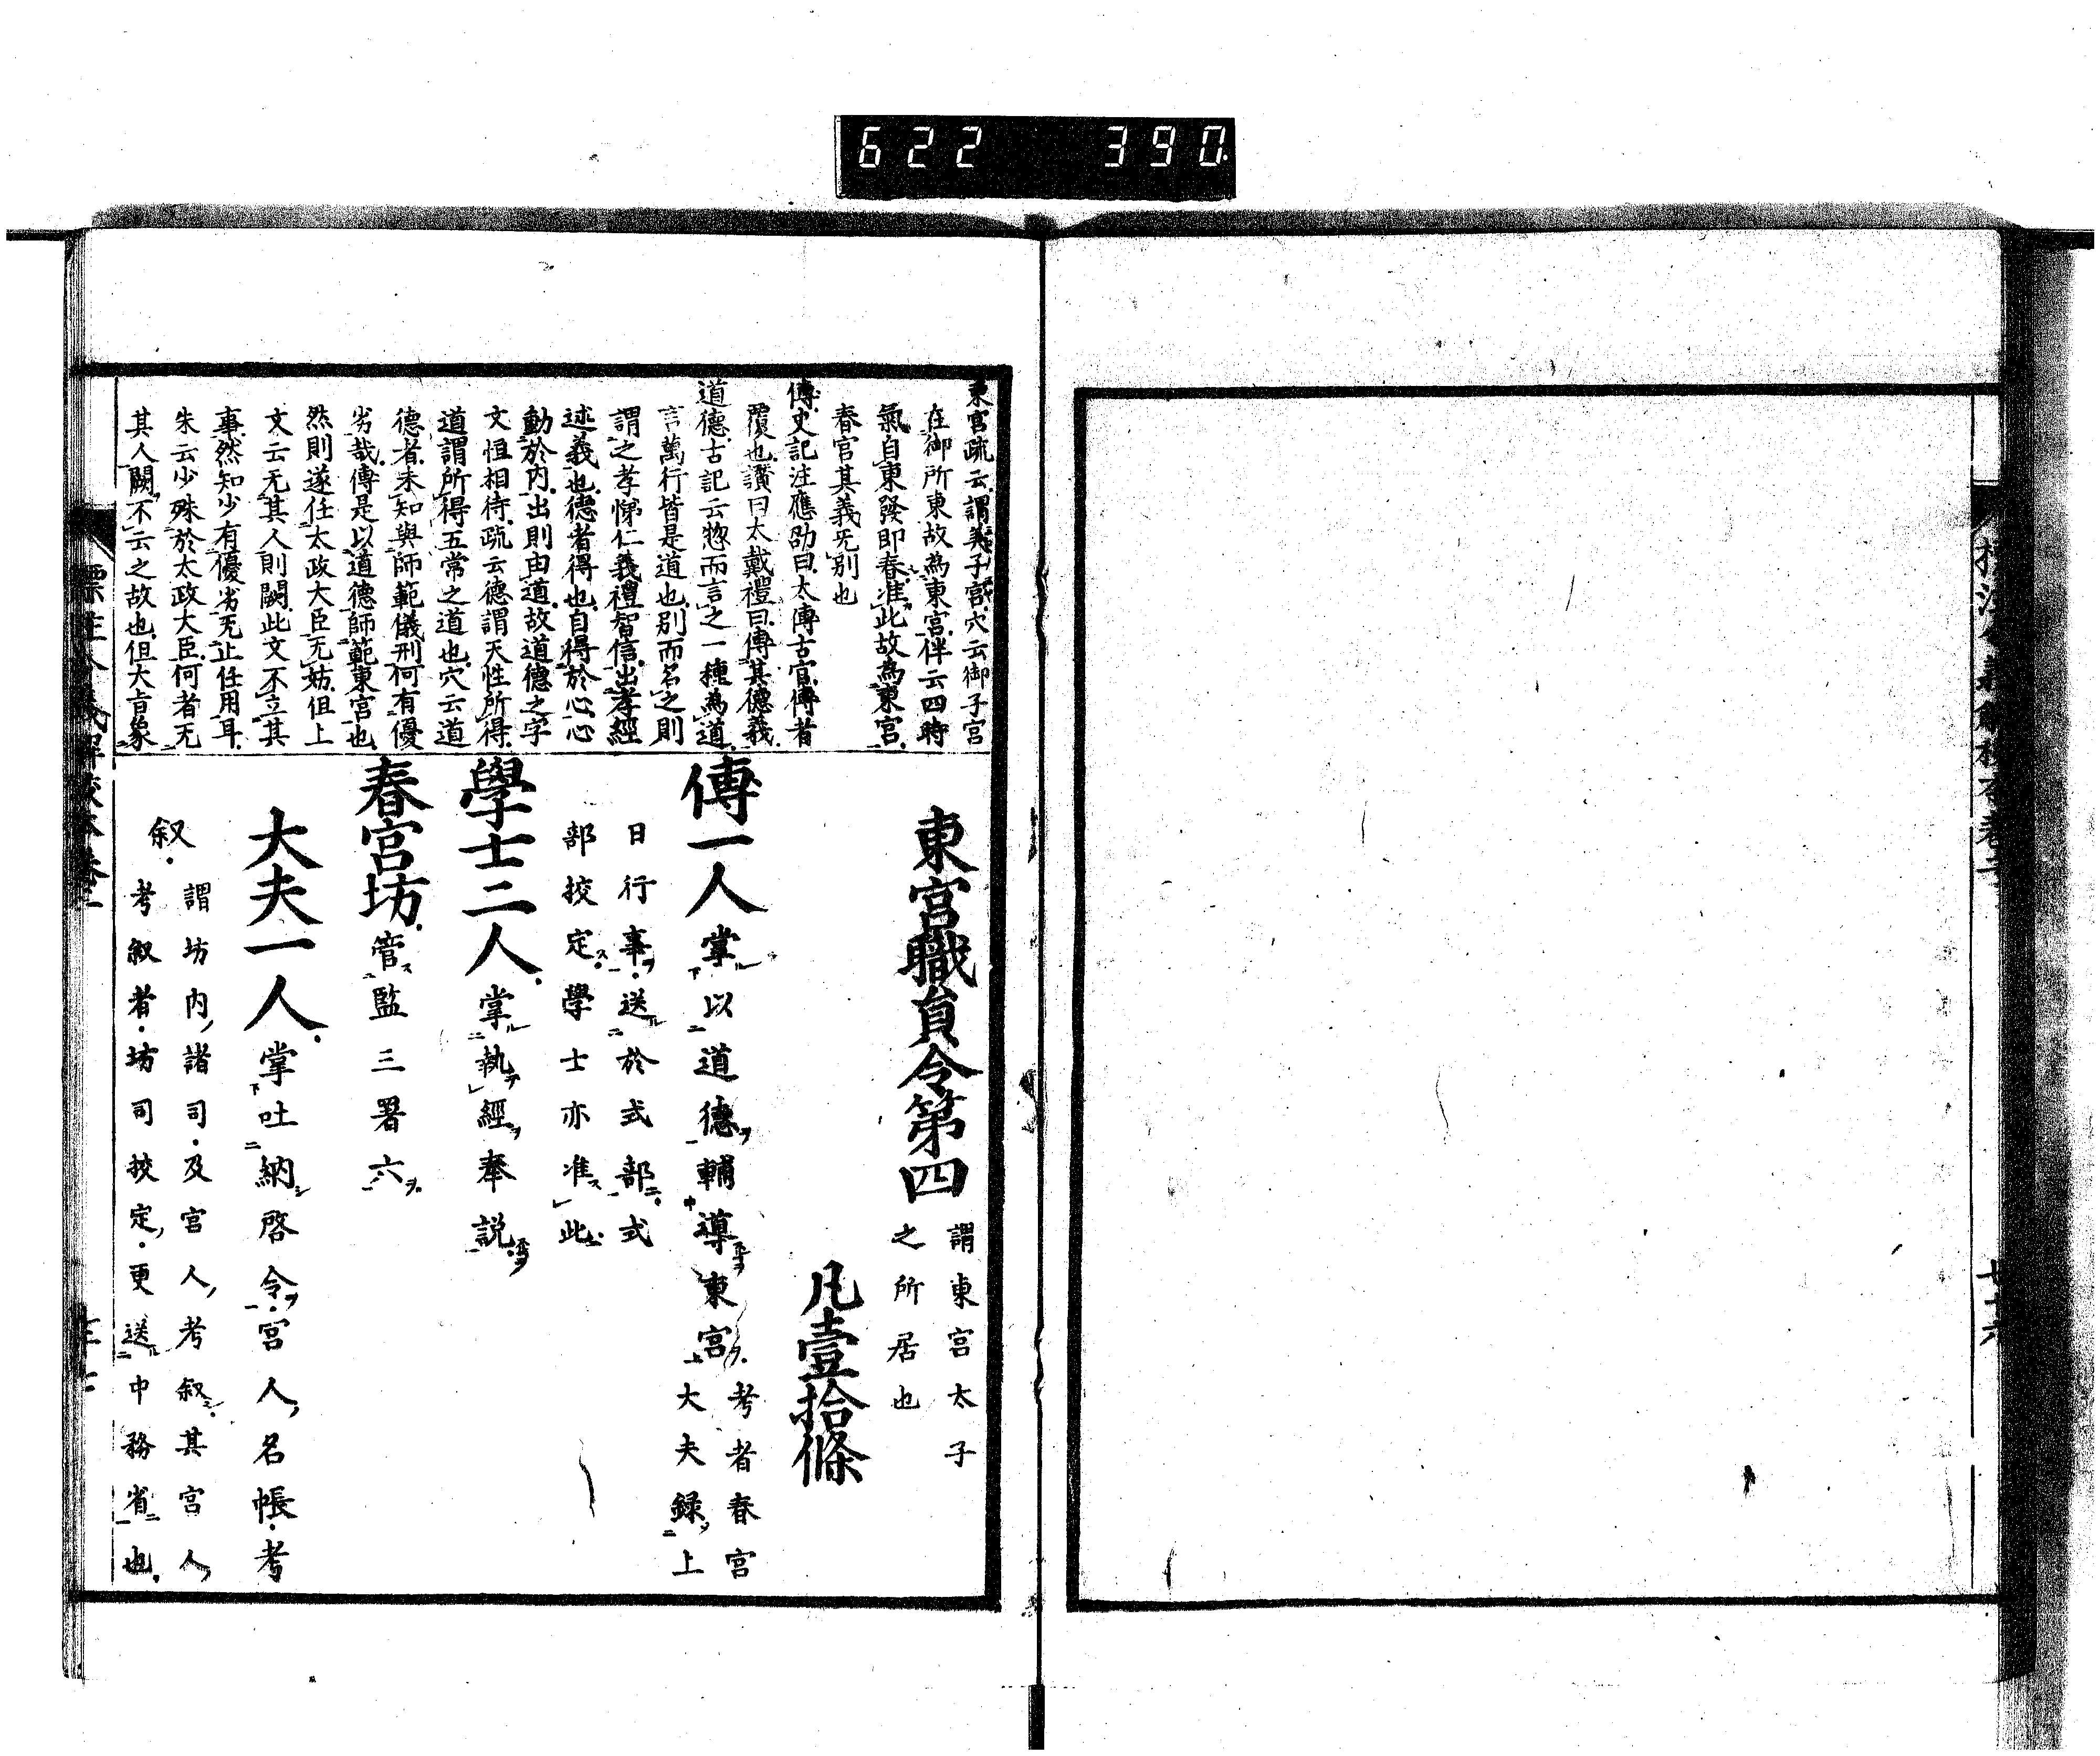 622 390
東宮疏云謂美子宮穴云御子宮
在御所東故為東宮伴云四時
氣自東發即春准此故為東宮
春宮其義旡別也
傳史記注應劭曰太傳古官傳者
覆也讃曰大戴禮曰傳其德義
道德古記云惣而言之一種為道
言萬行皆是道也別而名之則
謂之孝悌仁義禮智信出孝經
述義也德者得也自得於心心
動於內出則由道故道德之字
文恒相待疏云德謂天性所得
道謂所得五常之道也穴云道
德者未知與師範儀刑何有優
劣哉傳是以道德師範東宮也
然則遂任太政大臣旡妨但上
文云无其人則闕此文不立其
事然知少有優劣旡止任用耳
朱云少殊於太政大臣何者无
其人闕不云之故也但大旨象
東宮職貟令第四
謂東宮太子
之所居也
凡壹拾條
傳一人掌以道德輔導東宮
考者春宮
大夫録上
日行事送於式部式
部挍定學士亦准此
學士二人掌執經奉説
春宮坊管監三署六
大夫一人掌吐納啓令宮人名帳考
叙
謂坊內諸司及宮人考叙其宮人
考叙者坊司挍定更送中務省也